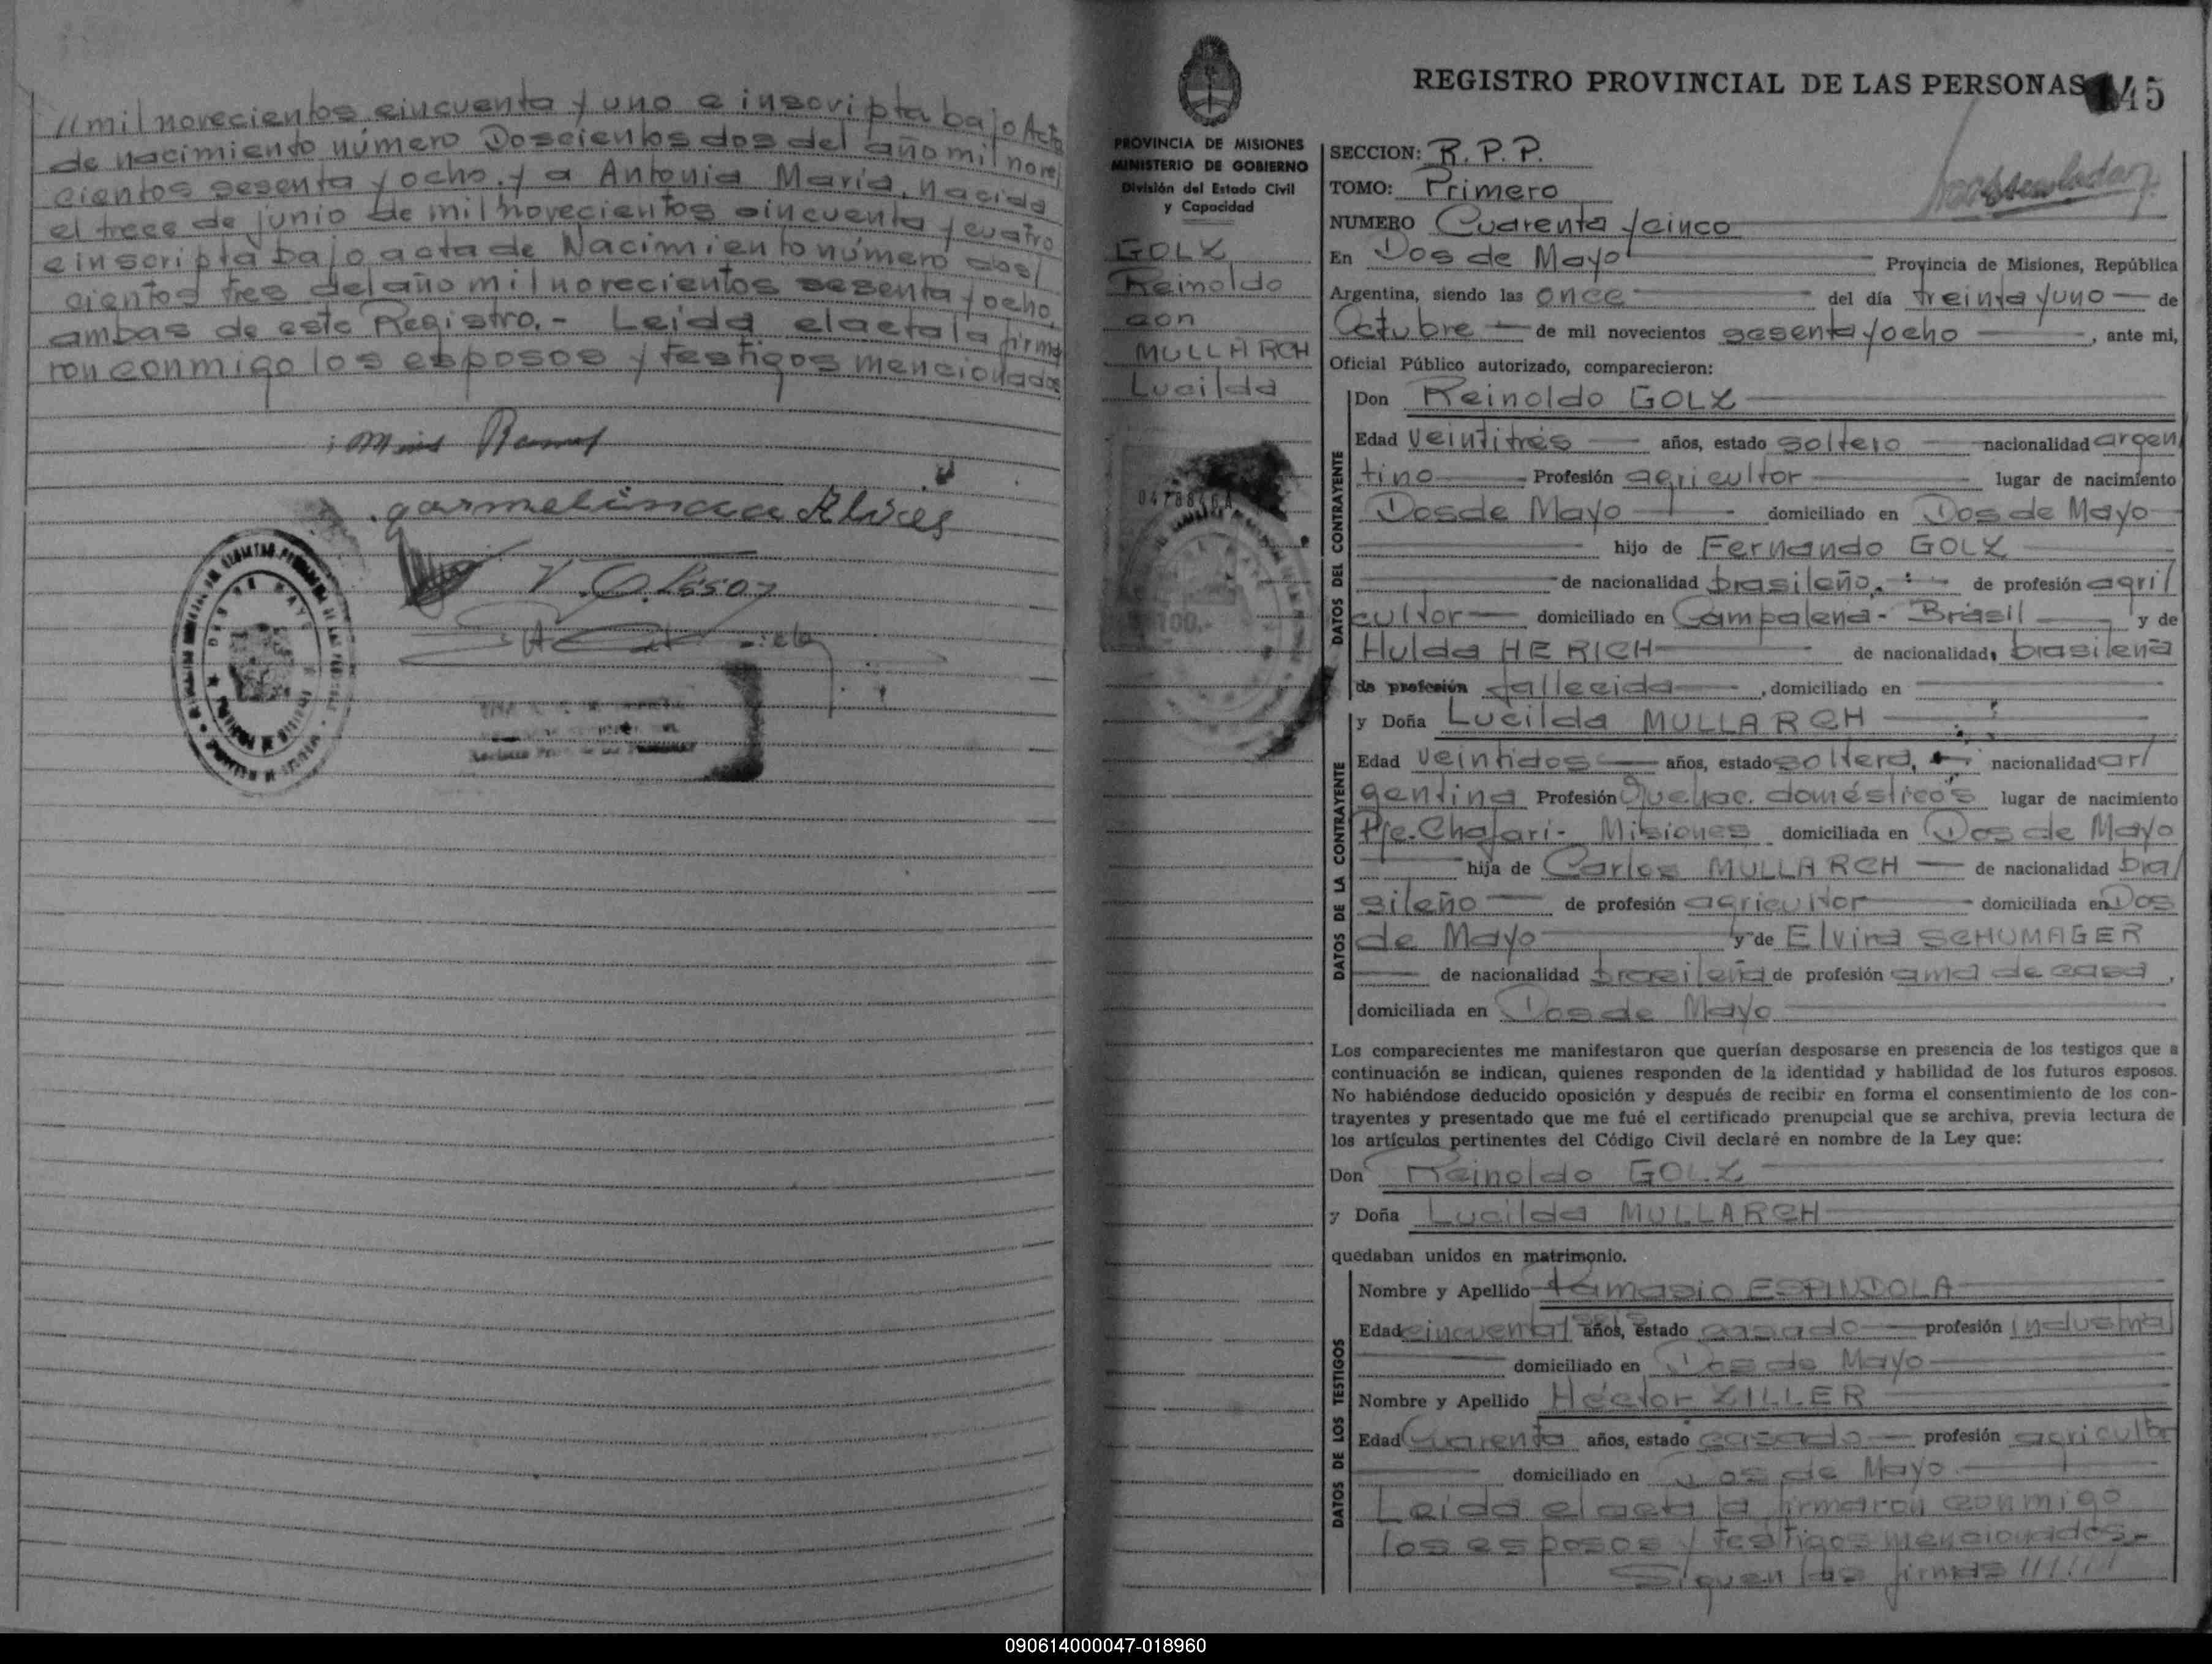 //mil novecientos cincuenta y uno e inscripta bajo Acta
de nacimiento número Doscientos dos del año mil nove/
cientos sesenta y ocho, y a Antonia María, nacida
el trece de junio de mil novecientos cincuenta y cuatro
e inscripta bajo acta de Nacimiento número dos/
cientos tres del año mil novecientos sesenta y ocho,
ambas de este Registro.- Leida el acta la firma
ron conmigo los esposos y testigos mencionados
REGISTRO PROVINCIAL DE LAS PERSONAS
45
PROVINCIA DE MISIONES
MINISTERIO DE GOBIERNO
División del Estado Civil
y Capacidad
GOLZ
Reinoldo
con
MULLARCH
Lucilda
0478846A
100.-
SECCION: R.P.P.
TOMO: Primero
NUMERO Cuarenta y cinco
En Dos de Mayo Provincia de Misiones, República
Argentina, siendo las once del día treinta y uno de
Octubre de mil novecientos sesenta y ocho, ante mi,
Oficial Público autorizado, comparecieron:
DATOS DEL CONTRAYENTE
Don Reinoldo GOLZ
Edad veintitrés años, estado soltero nacionalidad argen/
tino Profesión agricultor lugar de nacimiento
Dos de Mayo domiciliado en Dos de Mayo
hijo de Fernando GOLZ
de nacionalidad brasileño, de profesión agri/
cultor domiciliado en Campalena - Brasil y de
Hulda HERICH de nacionalidad, brasileña
de profesión fallecida, domiciliado en
DATOS DE LA CONTRAYENTE
y Doña Lucilda MULLARCH
Edad veintidos años, estado soltera, nacionalidad ar/
gentina Profesión Quehac. domésticos lugar de nacimiento
Pje. Chafari- Misiones domiciliada en Dos de Mayo
hija de Carlos MULLARCH de nacionalidad bra/
sileño de profesión agricultor domiciliada en Dos
de Mayo y de Elvira SCHUMAGER
de nacionalidad brasileña de profesión ama de casa,
domiciliada en Dos de Mayo
Los comparecientes me manifestaron que querían desposarse en presencia de los testigos que a
continuación se indican, quienes responden de la identidad y habilidad de los futuros esposos.
No habiéndose deducido oposición y después de recibir en forma el consentimiento de los con-
trayentes y presentado que me fué el certificado prenupcial que se archiva, previa lectura de
los artículos pertinentes del Código Civil declaré en nombre de la Ley que:
Don Reinoldo GOLZ
y Doña Lucilda MULLARCH
quedaban unidos en matrimonio.
DATOS DE LOS TESTIGOS
Nombre y Apellido Támasio ESPINDOLA
Edad cincuenta/seis años, estado casado profesión industrial
domiciliado en Dos de Mayo
Nombre y Apellido Héctor ZILLER
Edad Cuarenta años, estado casado profesión agricultor
domiciliado en Dos de Mayo
Leida el acta la firmaron conmigo
los esposos y testigos mencionados.-
Siguen las firmas //////
090614000047-018960